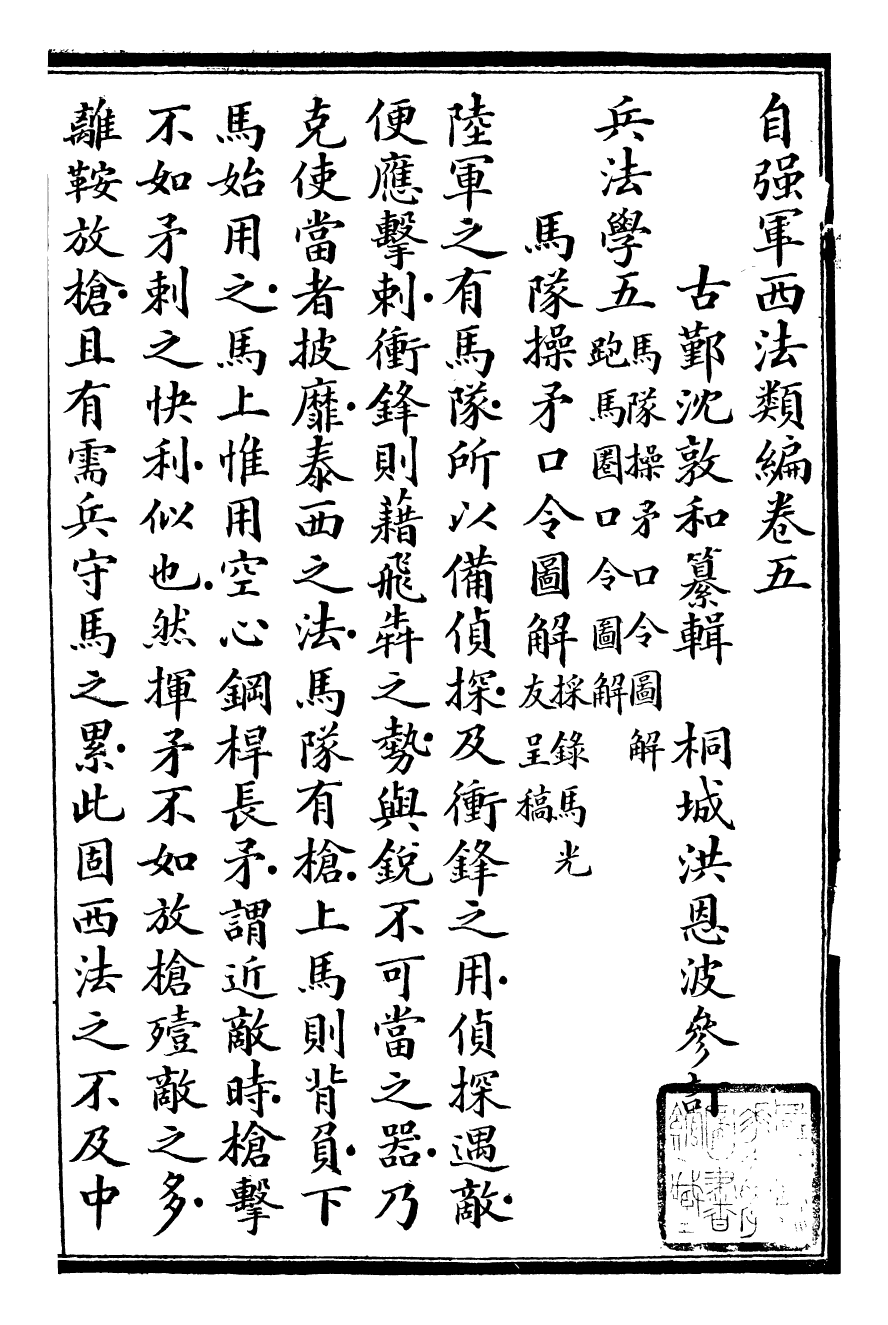 自强軍西法類編卷五
古鄞沈敦和纂輯　桐城洪恩波參訂
兵法學五　馬隊操矛口令圖解
跑馬圈口令圖解
馬隊操矛口令圖解　採錄馬光
友呈稿
陸軍之有馬隊．所以備偵探．及衝鋒之用．偵探遇敵．
便應擊刺．衝鋒則藉飛犇之勢．與銳不可當之器．乃
克使當者披靡．泰西之法．馬隊有槍．上馬則背負．下
馬始用之．馬上惟用空心鋼桿長矛．謂近敵時．槍擊
不如矛刺之快利．似也．然揮矛不如放槍殪敵之多．
離鞍放槍．且有需兵守馬之累．此固西法之不及中